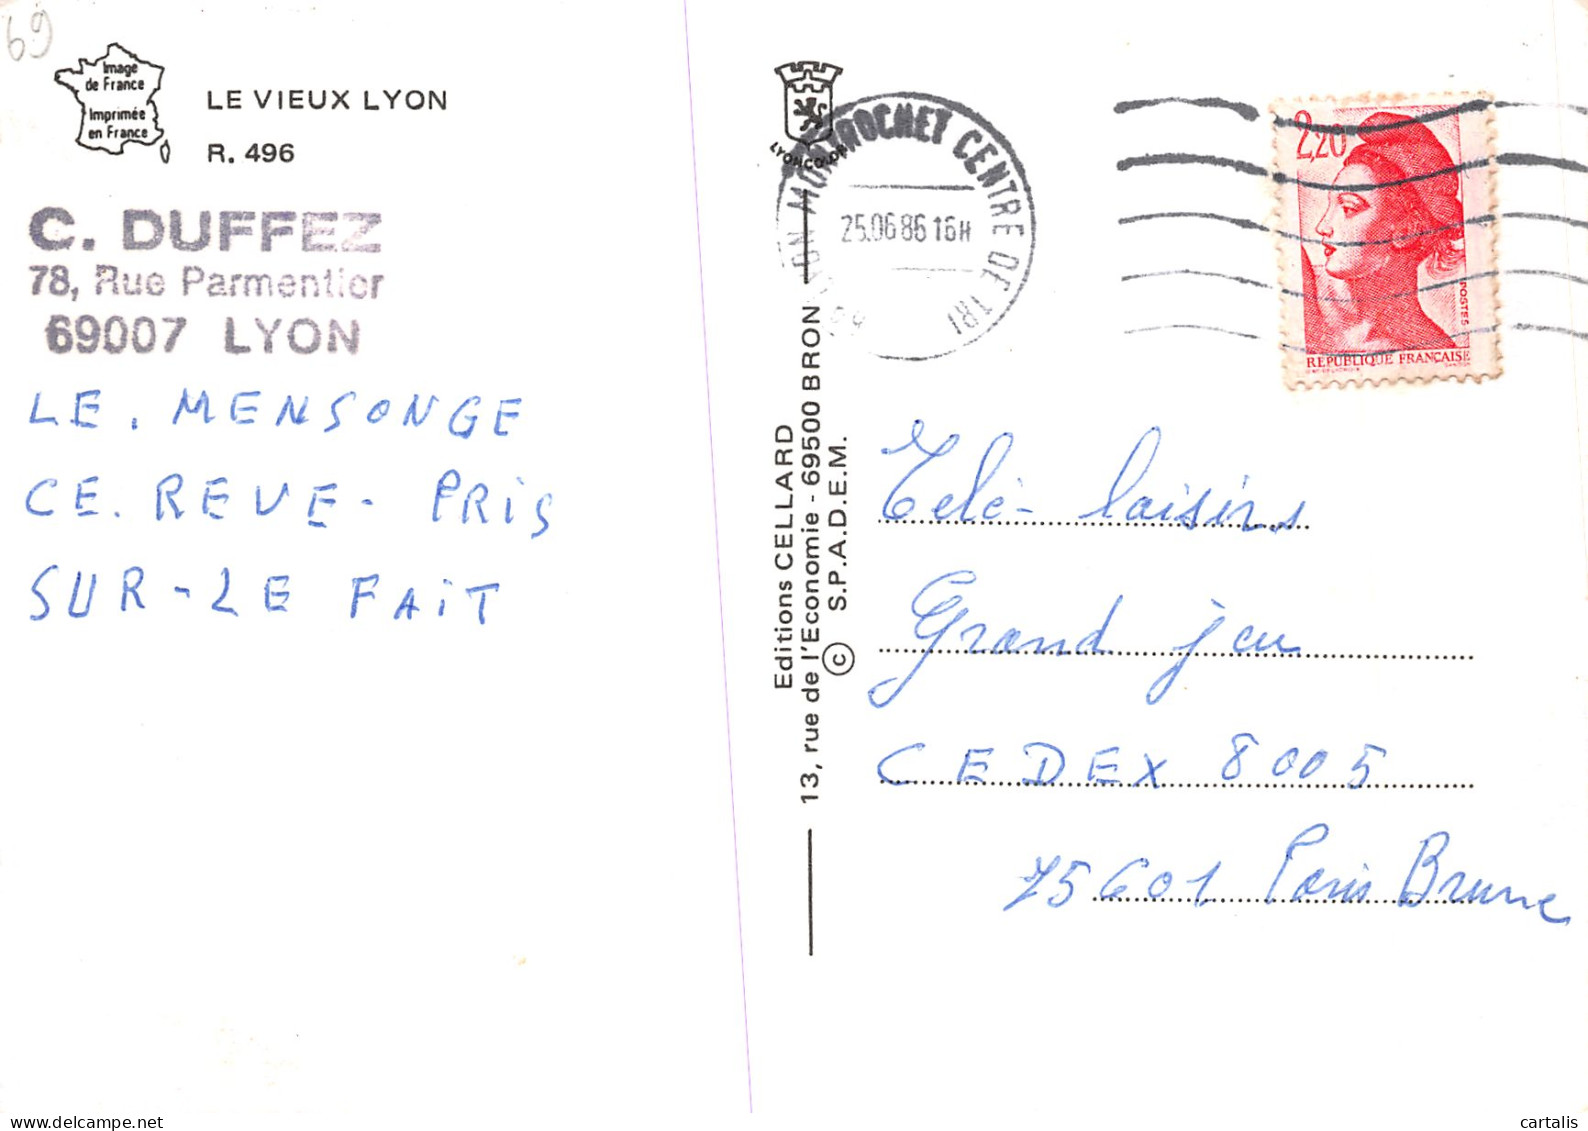 69
Image
de France
Imprimée
en France
LE VIEUX LYON
R. 496
C. DUFFEZ
78, Rue Parmentier
69007 LYON
LE. MENSONGE
CE. REVE - PRIS
SUR - LE FAIT
LYONCOLOR
Editions CELLARD
13, rue de l'Economie - 69500 BRON
© S.P.A.D.E.M.
69 LYON MONTROCHET CENTRE DE TRI
25.06 86 16H
2,20
POSTES
REPUBLIQUE FRANÇAISE
Télé - loisirs
Grand jeu
CEDEX 8005
75601 Paris Brune
cartalis www.delcampe.net